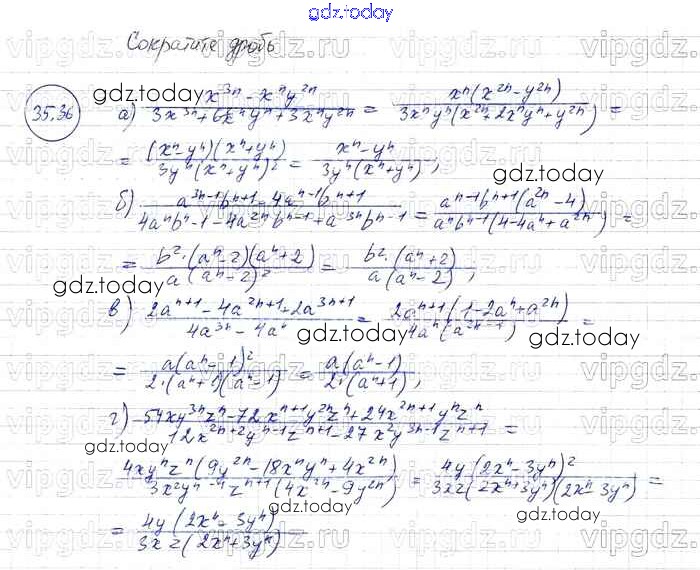 gdz.today
Сократите дробь
35.36
а) x³ⁿ - xⁿy²ⁿ / 3x³ⁿ + 6x²ⁿyⁿ + 3xⁿy²ⁿ = xⁿ(x²ⁿ - y²ⁿ) / 3xⁿyⁿ(x²ⁿ + 2xⁿyⁿ + y²ⁿ) =
= (xⁿ - yⁿ)(xⁿ + yⁿ) / 3yⁿ(xⁿ + yⁿ)² = xⁿ - yⁿ / 3yⁿ(xⁿ + yⁿ);
б) a³ⁿ⁻¹bⁿ⁺¹ - 4aⁿ⁻¹bⁿ⁺¹ / 4aⁿbⁿ⁻¹ - 4a²ⁿbⁿ⁻¹ + a³ⁿbⁿ⁻¹ = aⁿ⁻¹bⁿ⁺¹(a²ⁿ - 4) / aⁿbⁿ⁻¹(4 - 4aⁿ + a²ⁿ) =
= b²·(aⁿ - 2)(aⁿ + 2) / a(aⁿ - 2)² = b²·(aⁿ + 2) / a(aⁿ - 2);
в) 2aⁿ⁺¹ - 4a²ⁿ⁺¹ + 2a³ⁿ⁺¹ / 4a³ⁿ - 4aⁿ = 2aⁿ⁺¹(1 - 2aⁿ + a²ⁿ) / 4aⁿ(a²ⁿ - 1) =
= a(aⁿ - 1)² / 2·(aⁿ + 1)(aⁿ - 1) = a(aⁿ - 1) / 2·(aⁿ + 1);
г) 54xy³ⁿzⁿ - 72xⁿ⁺¹y²ⁿzⁿ + 24x²ⁿ⁺¹yⁿzⁿ / 12x²ⁿ⁺²yⁿ⁻¹zⁿ⁺¹ - 27x²y³ⁿ⁻¹zⁿ⁺¹ =
4xyⁿzⁿ(9y²ⁿ - 18xⁿyⁿ + 4x²ⁿ) / 3x²yⁿ⁻¹zⁿ⁺¹(4x²ⁿ - 9y²ⁿ) = 4y(2xⁿ - 3yⁿ)² / 3xz(2xⁿ + 3yⁿ)(2xⁿ - 3yⁿ) =
= 4y(2xⁿ - 3yⁿ) / 3xz(2xⁿ + 3yⁿ)